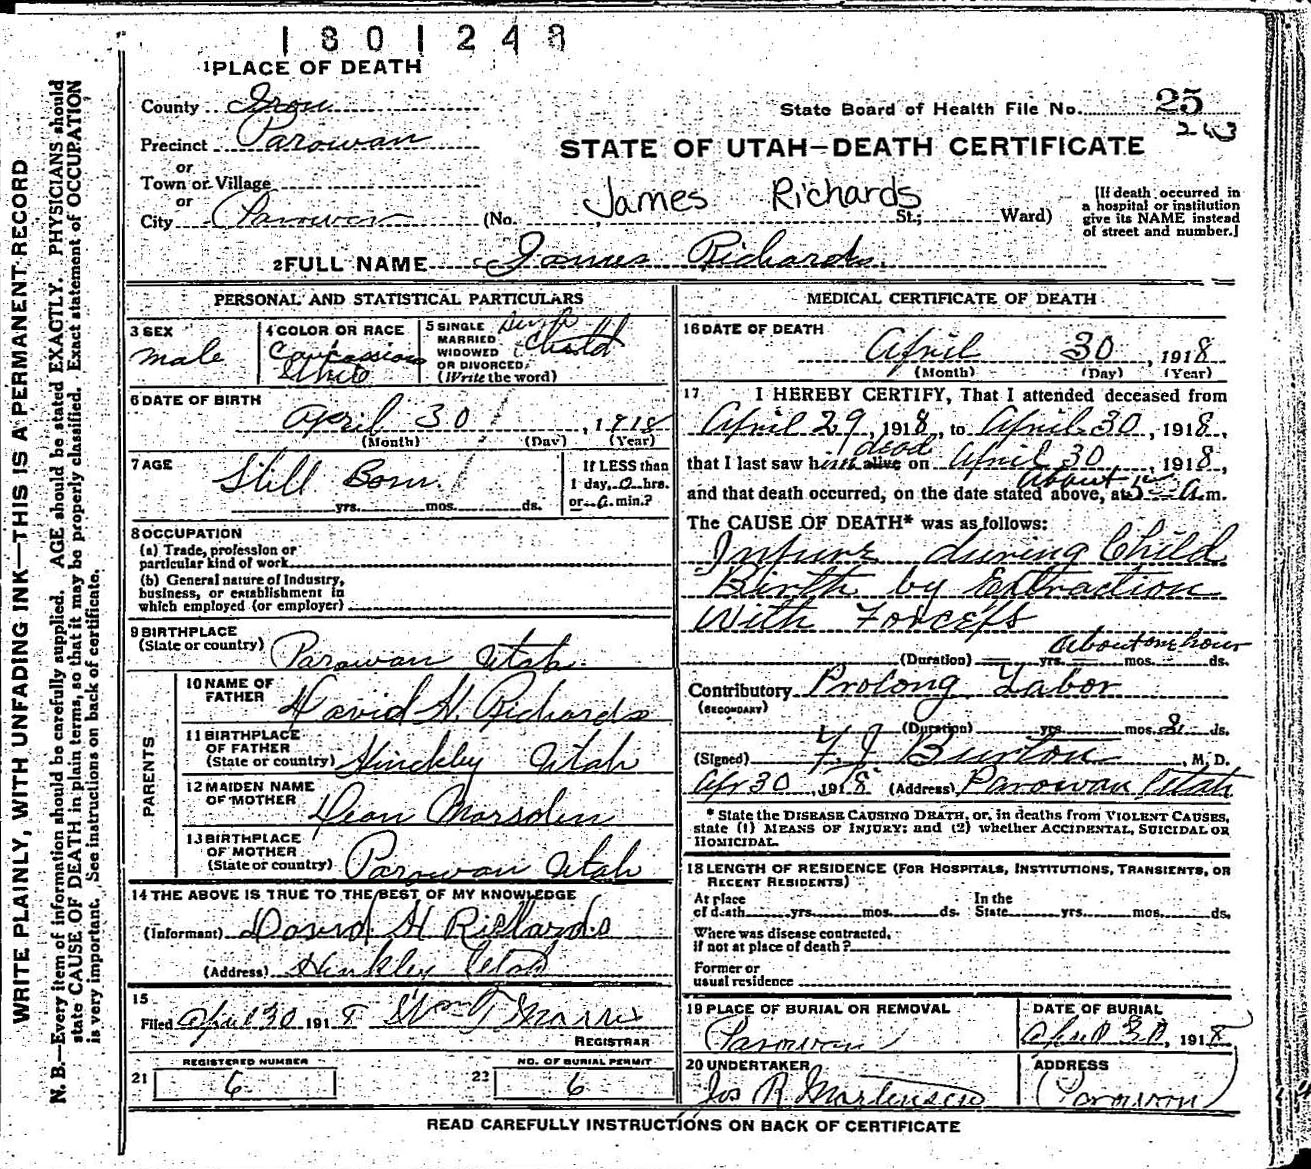 1801248
1 PLACE OF DEATH
County Iron
State Board of Health File No. 25
243
Precinct Parowan
STATE OF UTAH—DEATH CERTIFICATE
or
Town or Village
or
City Parowan (No. St.; Ward)
James Richards
[If death occurred in
a hospital or institution
give its NAME instead
of street and number.]
2 FULL NAME James Richards
PERSONAL AND STATISTICAL PARTICULARS
3 SEX
male
4 COLOR OR RACE
White
5 SINGLE
MARRIED
WIDOWED
OR DIVORCED
(Write the word)
Child
6 DATE OF BIRTH
April 30, 1918
(Month) (Day) (Year)
7 AGE
Still Born
yrs. mos. ds.
If LESS than
1 day, 0 hrs.
or 0 min.?
8 OCCUPATION
(a) Trade, profession or
particular kind of work
(b) General nature of Industry,
business, or establishment in
which employed (or employer)
9 BIRTHPLACE
(State or country) Parowan Utah
PARENTS
10 NAME OF
FATHER David H. Richards
11 BIRTHPLACE
OF FATHER
(State or country) Hinckley Utah
12 MAIDEN NAME
OF MOTHER
13 BIRTHPLACE
OF MOTHER
(State or country) Parowan Utah
14 THE ABOVE IS TRUE TO THE BEST OF MY KNOWLEDGE
(Informant) David H Richards
(Address) Hinkley Utah
15
Filed April 30 1918 Wm T Morris
REGISTRAR
REGISTERED NUMBER
21 6
NO. OF BURIAL PERMIT
22 6
MEDICAL CERTIFICATE OF DEATH
16 DATE OF DEATH
April 30, 1918
(Month) (Day) (Year)
17 I HEREBY CERTIFY, That I attended deceased from
April 29, 1918, to April 30, 1918,
that I last saw him alive dead on April 30, 1918,
and that death occurred, on the date stated above, at about 5 A.m.
The CAUSE OF DEATH* was as follows:
Injury during Child
Birth by Extraction
With Forceps
(Duration) yrs. mos. ds. About one hour
Contributory Prolong Labor
(SECONDARY)
(Duration) yrs. mos. 2 ds.
(Signed) Burton, M. D.
Apr 30, 1918 (Address) Parowan Utah
* State the DISEASE CAUSING DEATH, or, in deaths from VIOLENT CAUSES,
state (1) MEANS OF INJURY; and (2) whether ACCIDENTAL, SUICIDAL OR
HOMICIDAL.
18 LENGTH OF RESIDENCE (FOR HOSPITALS, INSTITUTIONS, TRANSIENTS, OR
RECENT RESIDENTS)
At place
of death yrs. mos. ds.
In the
State yrs. mos. ds.
Where was disease contracted,
if not at place of death?
Former or
usual residence
19 PLACE OF BURIAL OR REMOVAL
Parowan
DATE OF BURIAL
April 30, 1918
20 UNDERTAKER
Jos R Mortensen
ADDRESS
Parowan
READ CAREFULLY INSTRUCTIONS ON BACK OF CERTIFICATE
WRITE PLAINLY, WITH UNFADING INK—THIS IS A PERMANENT RECORD
N. B.—Every item of information should be carefully supplied. AGE should be stated EXACTLY. PHYSICIANS should
state CAUSE OF DEATH in plain terms, so that it may be properly classified. Exact statement of OCCUPATION
is very important. See instructions on back of certificate.